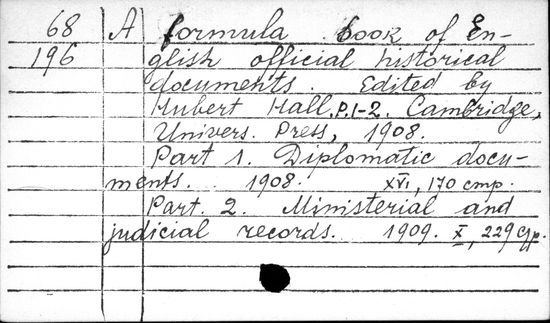 68 A formula book of En-
196 glish official historical
documents. Edited by
Hubert Hall. P.1-2. Cambridge,
Univers. Press, 1908.
Part 1. Diplomatic docu-
ments. 1908. XVI, 170 cmp.
Part. 2. Ministerial and
judicial records. 1909. X, 229 cmp.